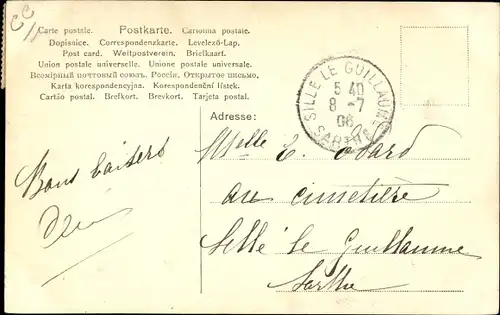 CC
Carte postale. Postkarte. Cartonna postale.
Dopisnice. Correspondenzkarte. Levelező-Lap.
Post card. Weltpostverein. Briefkaart.
Union postale universelle. Unione postale universale.
Всемірный почтовый союзъ. Россія. Открытое письмо.
Karta korespondencyjna. Korespondenční lístek.
Cartão postal. Brefkort. Brevkort. Tarjeta postal.
SILLE LE GUILLAUME
5 40
8 - 7
06
SARTHE
Adresse:
Melle E. Odard
au cimetière
Sillé le Guillaume
Sarthe
Bons baisers